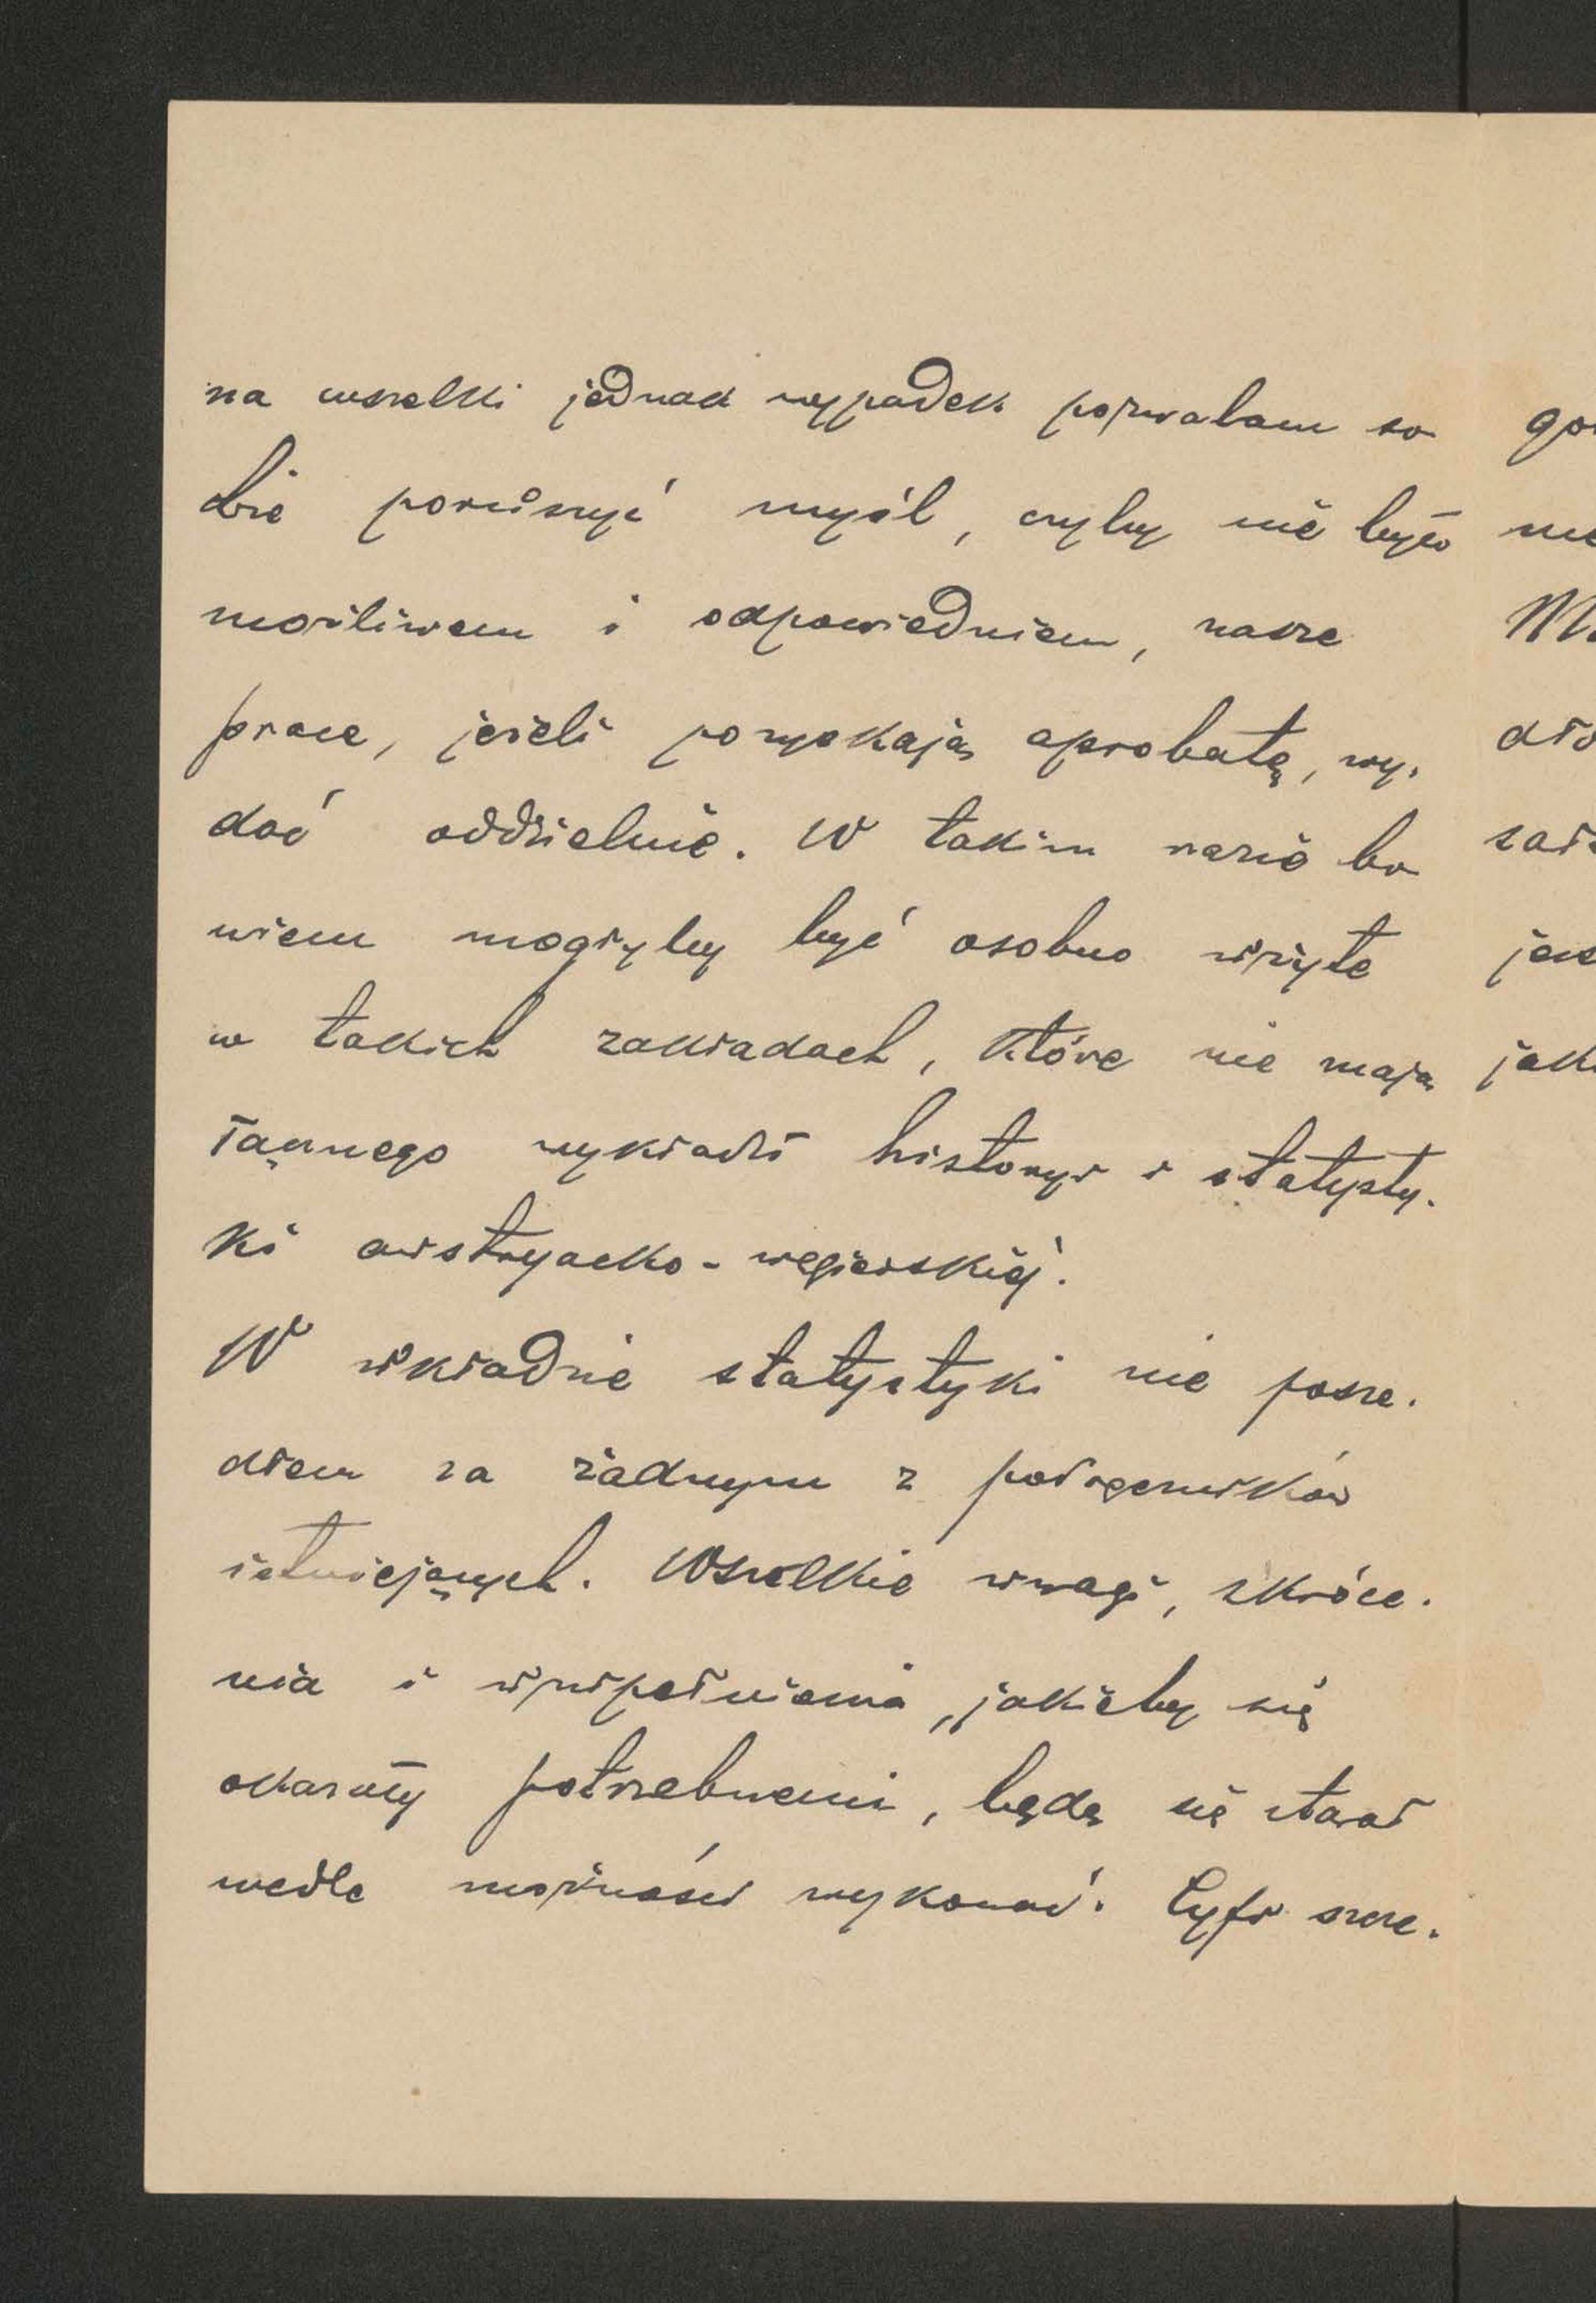 na wszelki jednak wypadek pozwalam so
bie poruszyć myśl, czyby nie było
możliwem i odpowiedniem, nasze
prace, jeżeli pozyskają aprobatę, wy-
dać oddzielnie. W takim razie bo
wiem mogłyby być osobno użyte
w takich zakładach, które nie mają
łącznego wykładu historyi i statysty-
ki austryacko-węgierskiéj.
W układzie statystyki nie posze-
dłem za żadnym z podręczników
istniejących. Wszelkie uwagi, skróce-
nia i uzupełnienia, jakieby się
okazały potrzebnemi, będę się starał
wedle możności wykonać. Cyfr szcze-